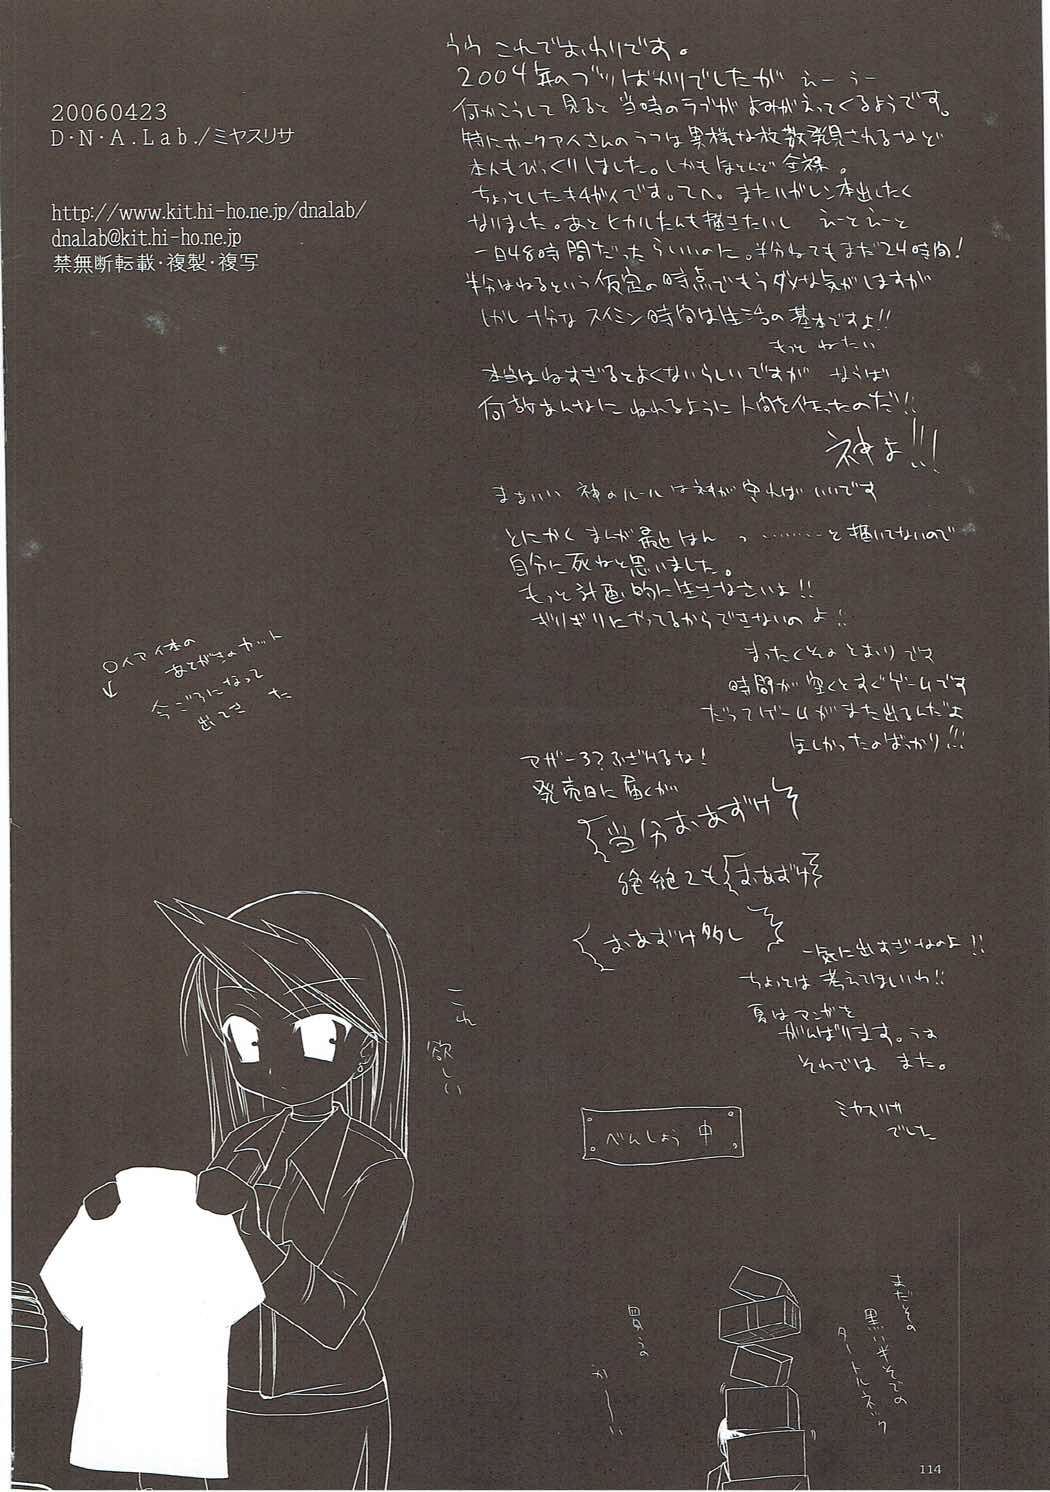 20060423
D・N・A.Lab./ミヤスリサ
http://www.kit.hi-ho.ne.jp/dnalab/
dnalab@kit.hi-ho.ne.jp
禁無断転載・複製・複写
うう これでおわりです。
2004年のブツばかりでしたが えー うー
何かこうして見ると当時のラブがよみがえってくるようです。
特にホークアイさんのラフは異様な枚数発見されるなど
本人もびっくりしました。しかもほとんど全裸。
ちょっとしたキ4ガイです。てへ。またハガレン本出したく
なりました。あとヒカルたんも描きたいし えーとえーと
一日48時間だったらいいのに。半分ねてもまだ24時間!
半分はねるという仮定の時点でもうダメな気がしますが
しかし十分なスイミン時間は生活の基本ですよ!!
もっと ねたい
本当はねすぎるとよくないらしいですが ならば
何故あんなに ねれるように人間を作ったのだ!!
神よ!!!
まぁいい 神のルールは神が守ればいいです
とにかくまんが最近はん っ………と描いてないので
自分に死ねと思いました。
もっと計画的に生きなさいよ!!
ぎりぎりにやってるからできないのよ!!
まったくそのとおりです
時間が空くとすぐゲームです
だってゲームがまた出るんだよ
ほしかったのばっかり!!!
マザー3?ふざけるな!
発売日に届くが
当分おあずけ
絶絶2も おあずけ
おあずけ多し
一気に出すぎなのよ!!
ちょっとは考えてほしいわ!!
夏はマンガを
がんばります。うぉ
それでは また。
ミヤスリサ
でした
○イアイ本の
あとがきのカット
今ごろになって
出てきた
これ
欲しい
べんしょう中
買うの
かーい
まだその
黒い半そでの
タートルネック
114